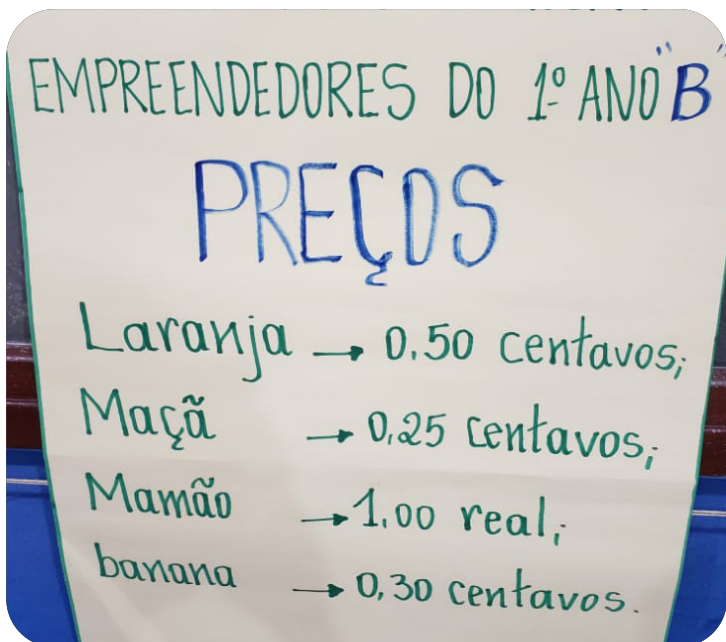 EMPREENDEDORES DO 1º ANO "B"
PREÇOS
Laranja → 0.50 centavos;
Maçã → 0,25 centavos;
Mamão → 1.00 real;
banana → 0,30 centavos.